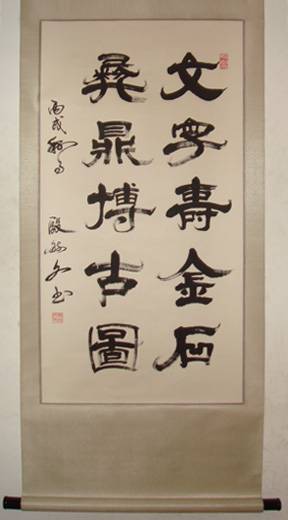 文字壽金石
彝鼎博古圖
丙戌秋月 殷